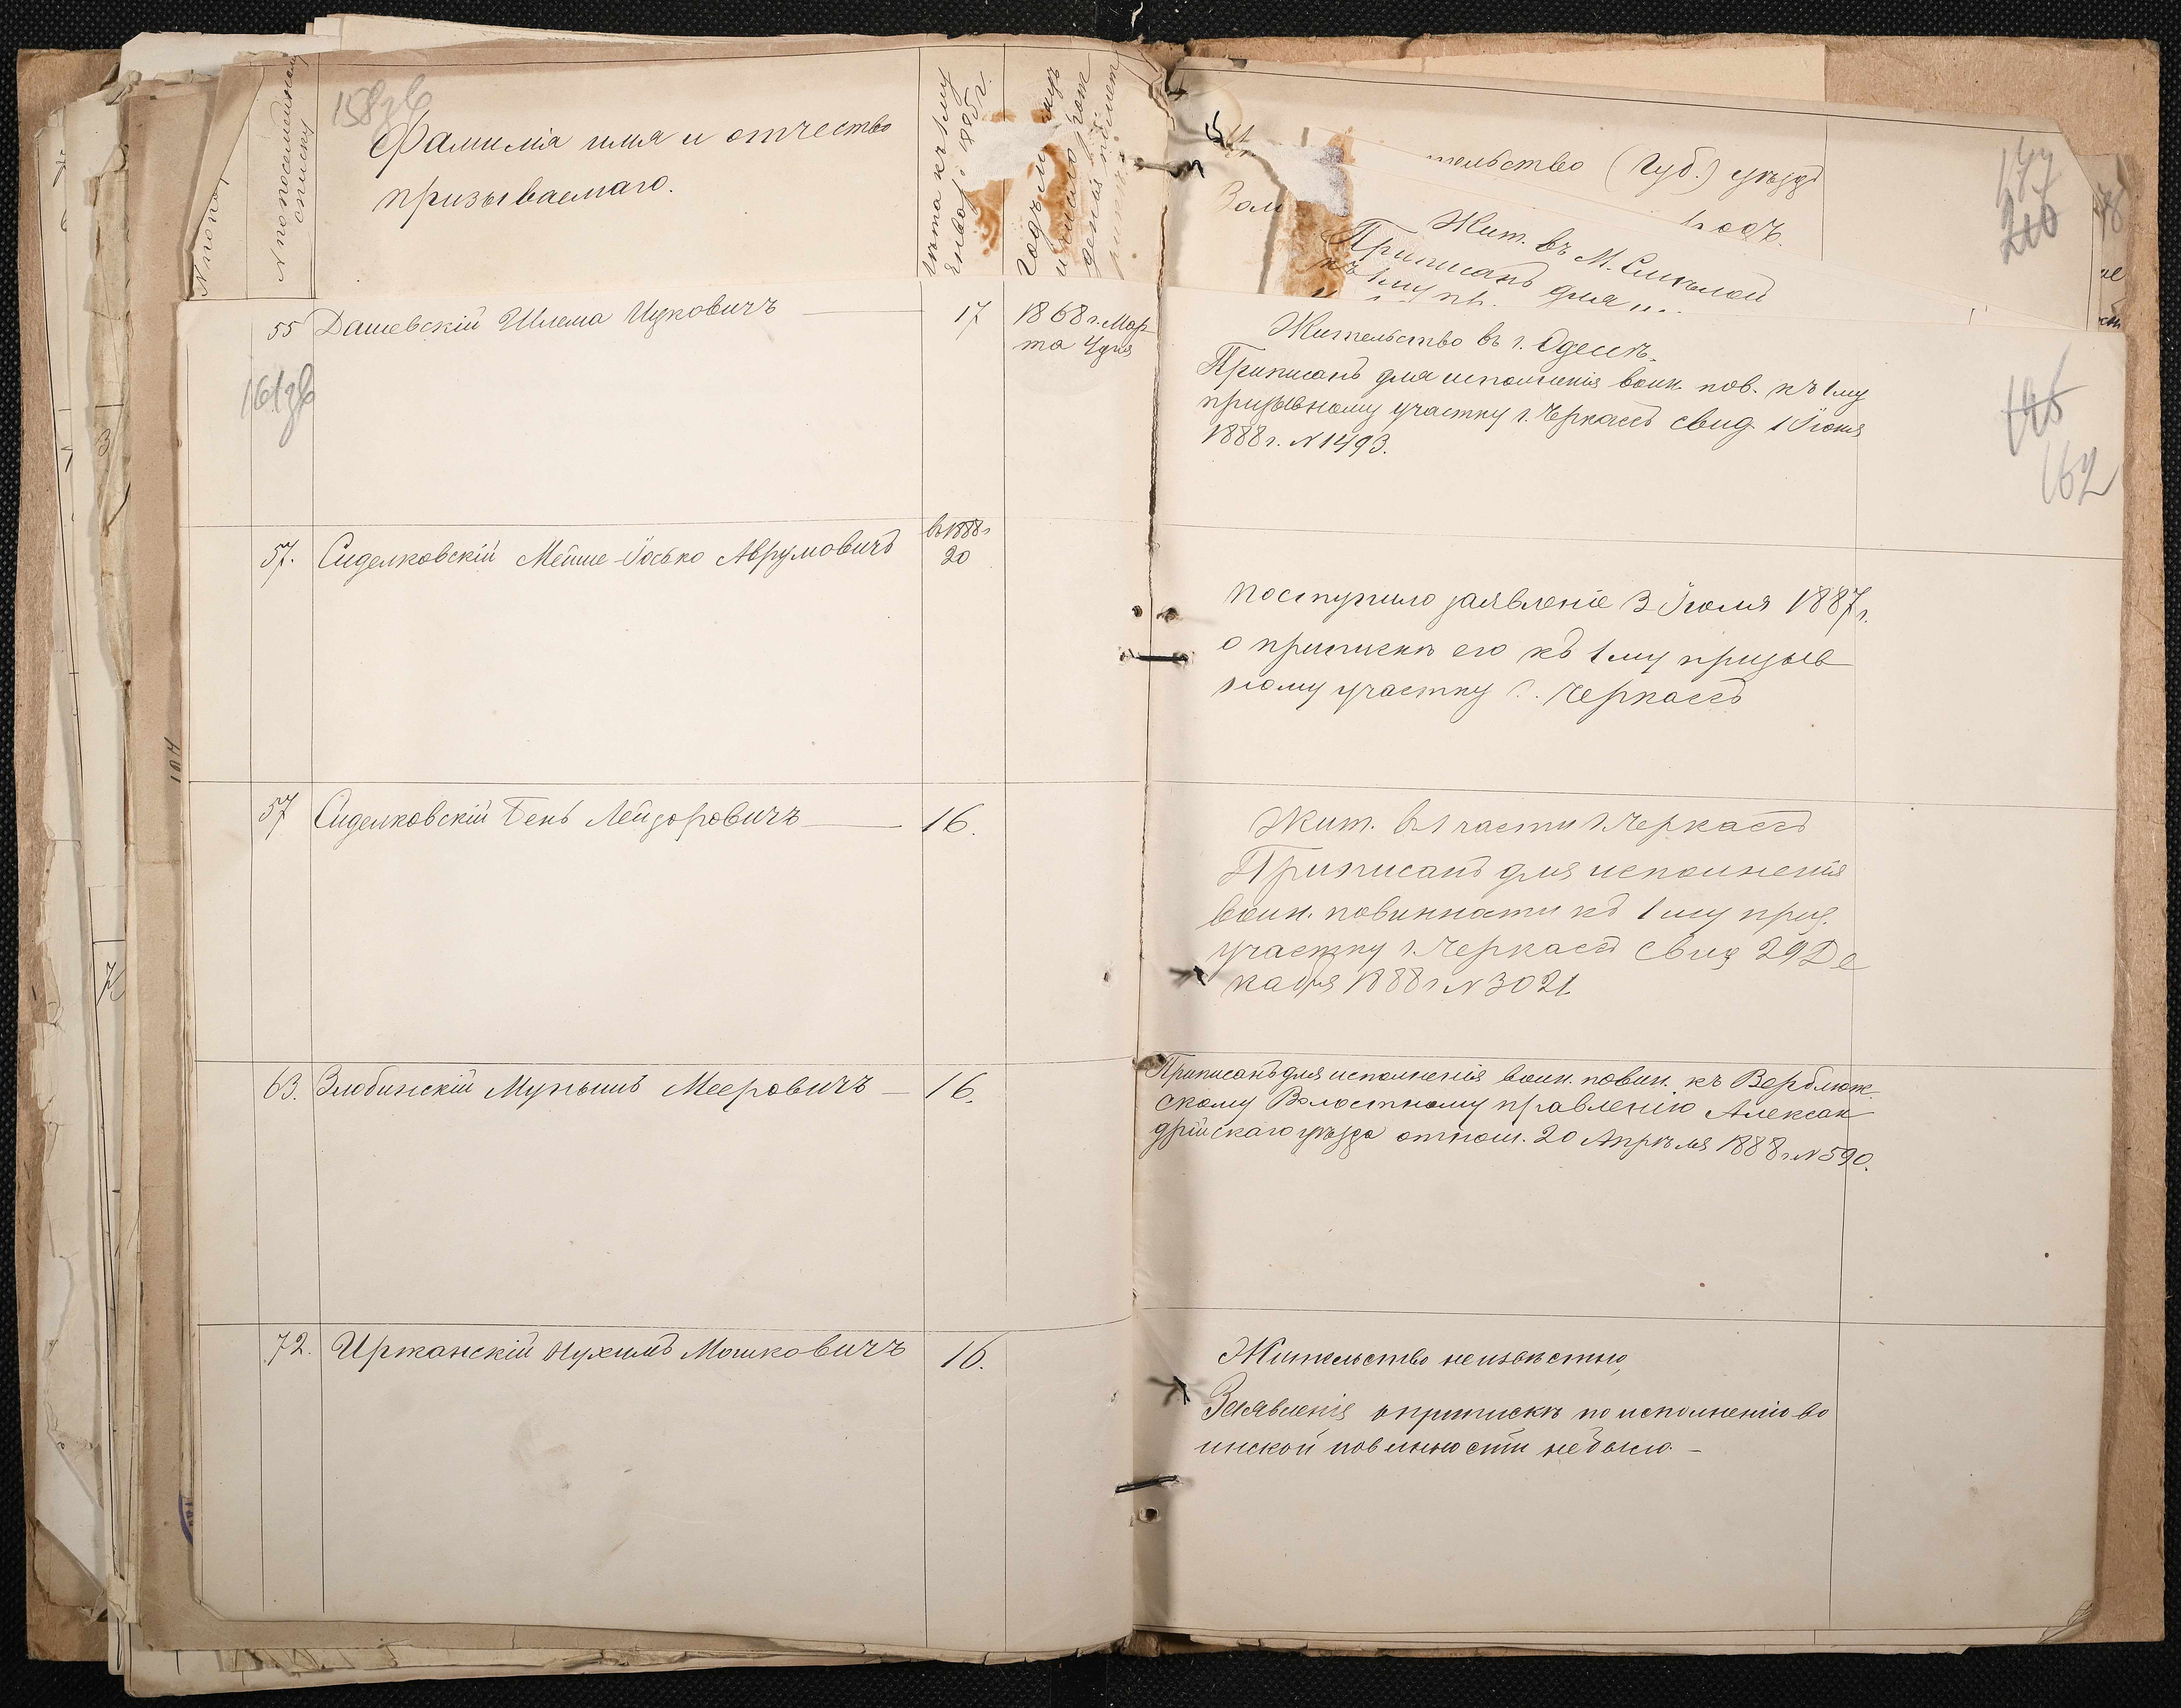 158 зв
N по по
N по посемейному
списку
Фамилія имя и отчество
призываемаго.
лѣта къ 1му
Январ. 1885 г.
тельство (Губ.) уѣздъ
177
Жит. въ М. Смѣлой
Приписанъ для
къ 1му
55 Дашевскій Шлема Ицковичъ — 17 1868 г. Мар
та 4 дня
161 зв
Жительство въ г. Одессѣ.
Приписанъ для исполненія воин. пов. къ 1му
призывному участку г. Черкассъ свид 1 Іюня
1888 г. N 1493.
162
57. Сиделковскій Мейше-Іосько Аврумовичъ въ 1888 г
20
поступило заявленіе 3 Іюля 1887 г.
о припискѣ его къ 1му призыв
ному участку г. Черкассъ
57 Сиделковскій Бень Лейзоровичъ — 16.
Жит. въ 1 части г. Черкассъ
Приписанъ для исполненія
воин. повинности къ 1му приз.
участку г. Черкассъ свид 29 Де
кабря 1888 г N 3021
63. Злобинскій Мееровичъ — 16.
Приписанъ для исполненія воин. повин. къ Верблюж-
скому Волостному правленію Алексан
дрійскаго уѣзда отнош. 20 Апрѣля 1888 г. N 590.
72. Иржанскій Нухимъ Мошковичъ 16.
Жительство неизвѣстно,
Заявленія о припискѣ по исполненію во
инской повинности не было. —